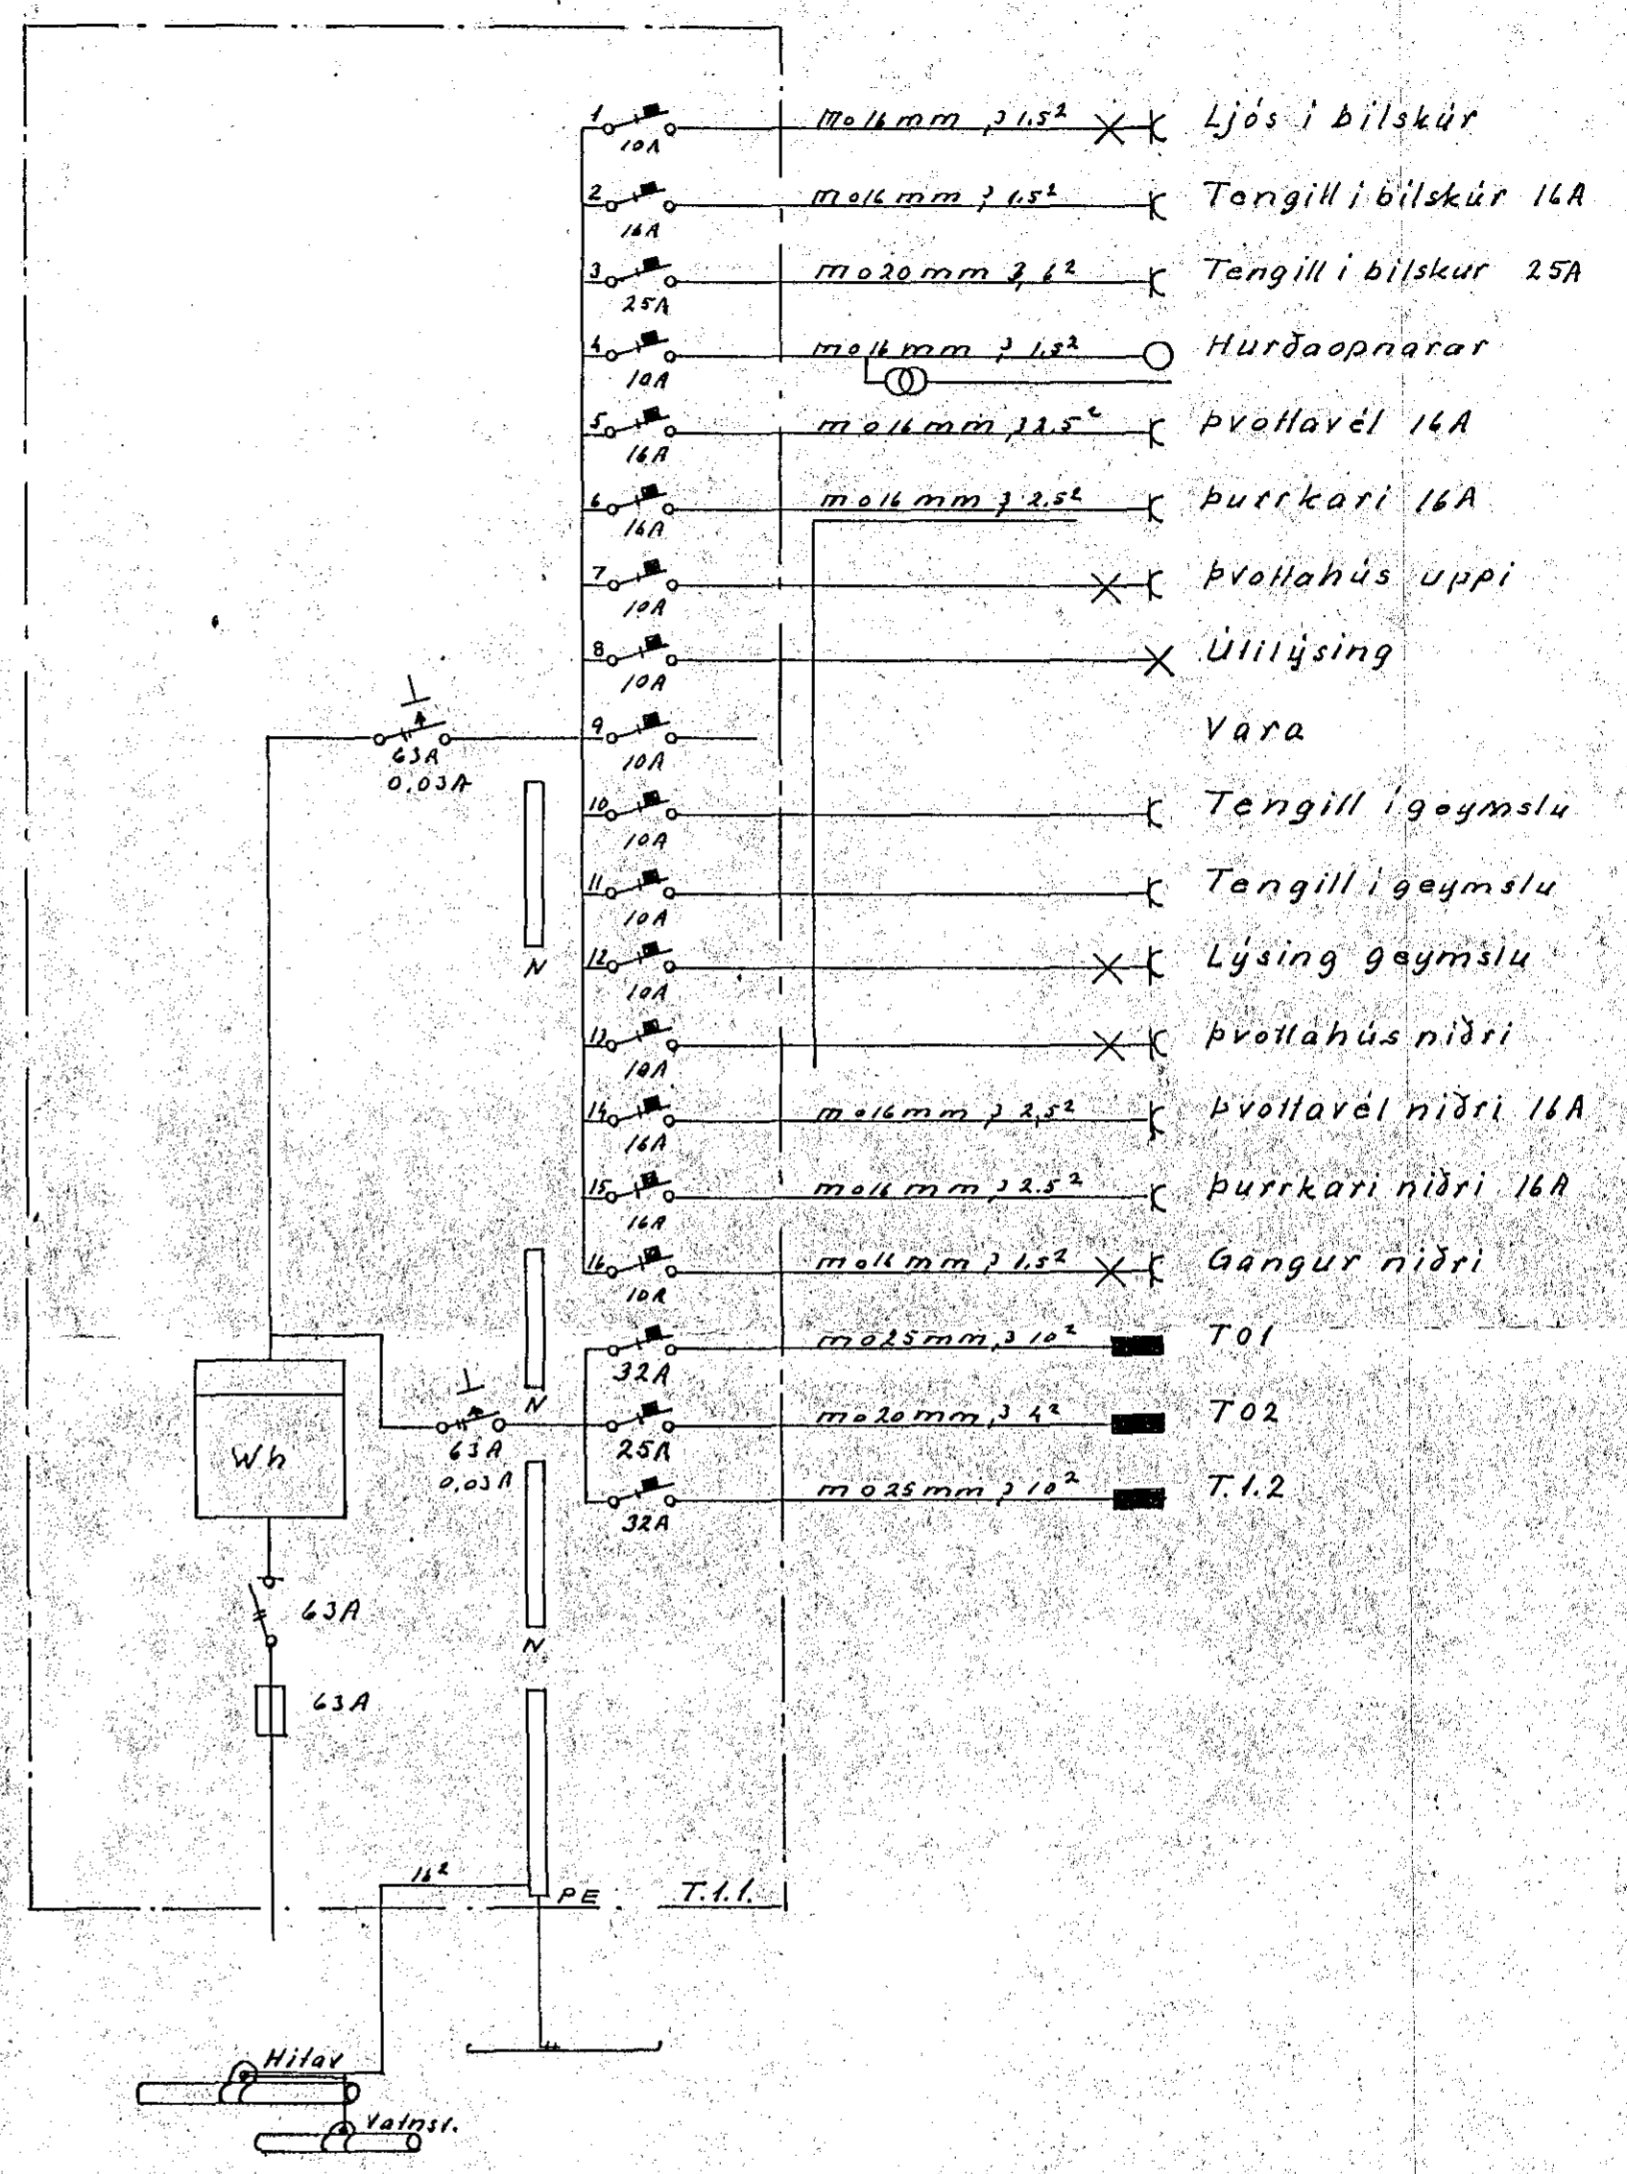 1 10A mø16mm, 3 1.5² Ljós í bílskúr
2 16A mø16mm, 3 1.5² Tengill í bílskúr 16A
3 25A mø20mm 3, 6² Tengill í bílskúr 25A
4 10A mø16mm, 3 1.5² Hurðaopnarar
5 16A mø16mm, 3 2.5² Þvottavél 16A
6 16A mø16mm, 3 2.5² Þurrkari 16A
7 10A Þvottahús uppi
8 10A Útilýsing
63A
0.03A
9 10A Vara
10 10A Tengill í geymslu
11 10A Tengill í geymslu
N
12 10A Lýsing geymslu
13 10A Þvottahús niðri
14 16A mø16mm, 3 2,5² Þvottavél niðri 16A
15 16A mø16mm, 3 2.5² Þurrkari niðri 16A
16 10A mø16mm, 3 1.5² Gangur niðri
32A mø25mm, 3 10² T01
N
Wh
63A
0,03A
25A mø20mm, 3 4² T02
32A mø25mm, 3 10² T.1.2
63A
N
63A
16²
PE
T.1.1.
Hitav
Vatnsv.